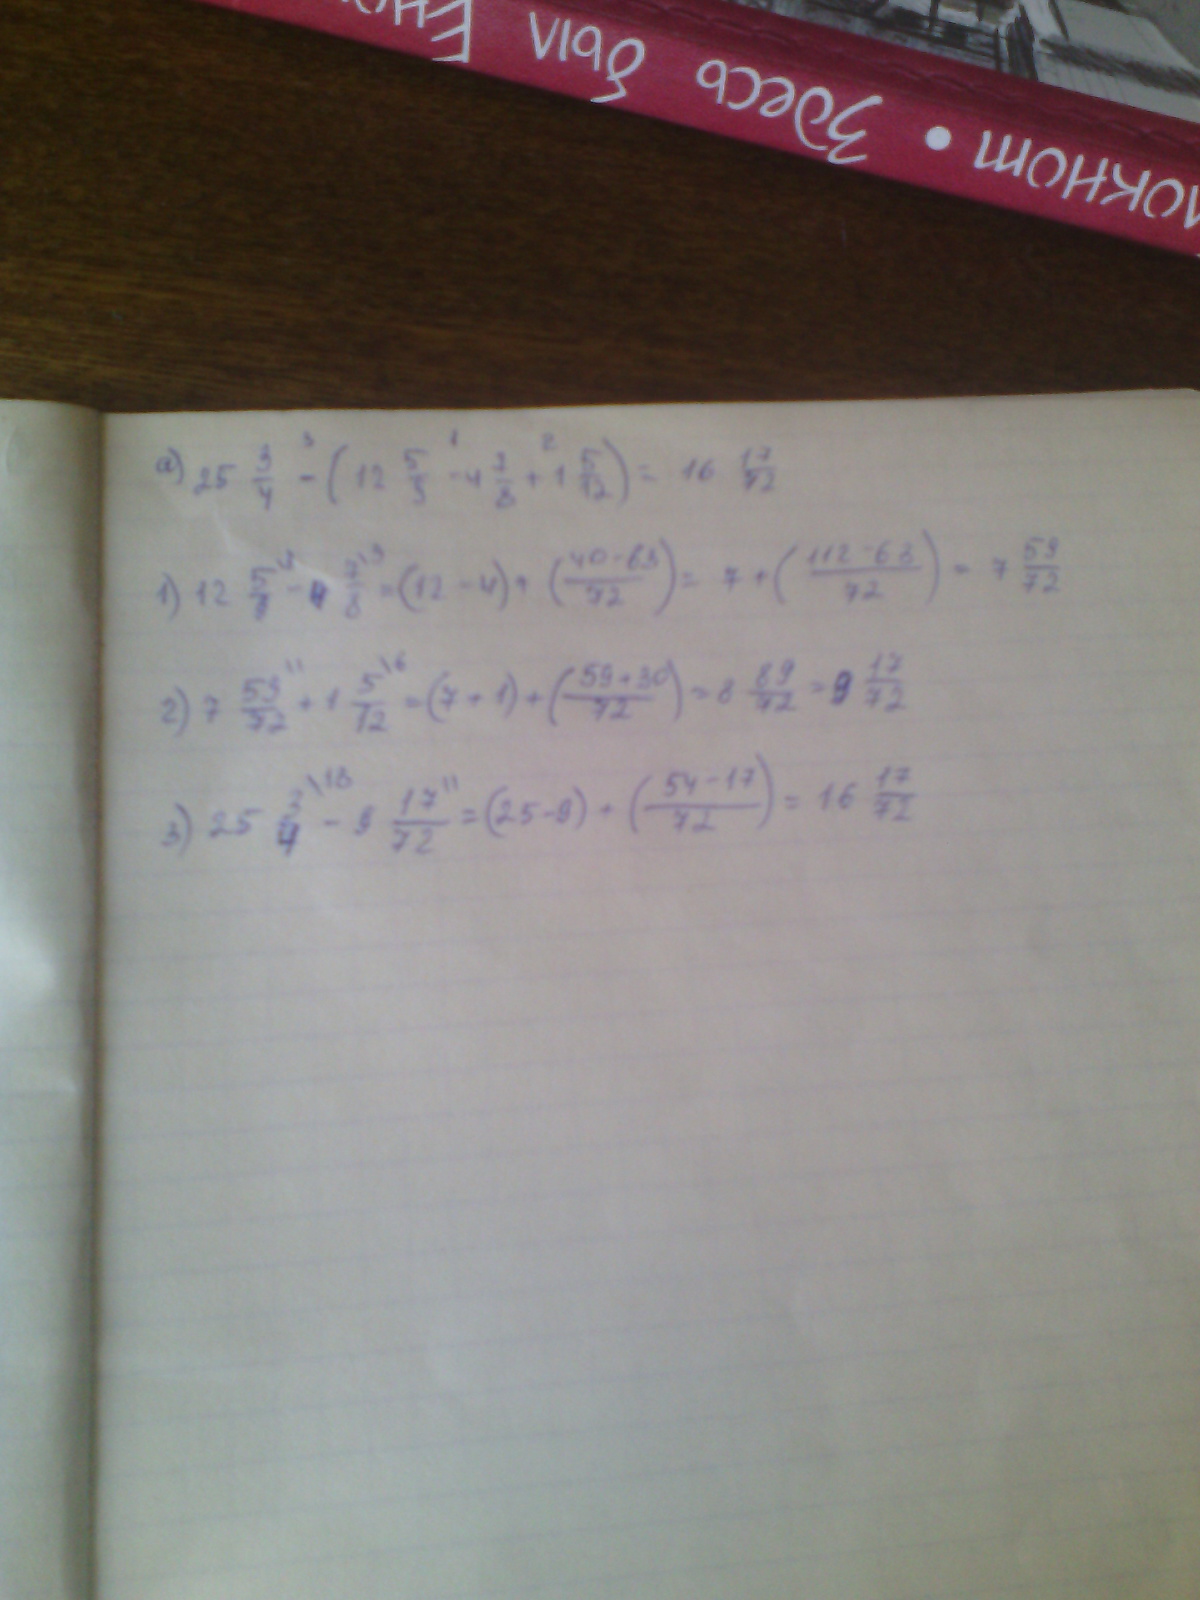 локнот • Здесь был Ено
a) 25 3/4 - (12 5/9 - 4 7/8 + 1 5/12) = 16 17/72
1) 12 5/9 - 4 7/8 = (12 - 4) + (40 - 63 / 72) = 7 + (112 - 63 / 72) = 7 59/72
2) 7 59/72 + 1 5/12 = (7 + 1) + (59 + 30 / 72) = 8 89/72 = 9 17/72
3) 25 3/4 - 9 17/72 = (25 - 9) + (54 - 17 / 72) = 16 17/72